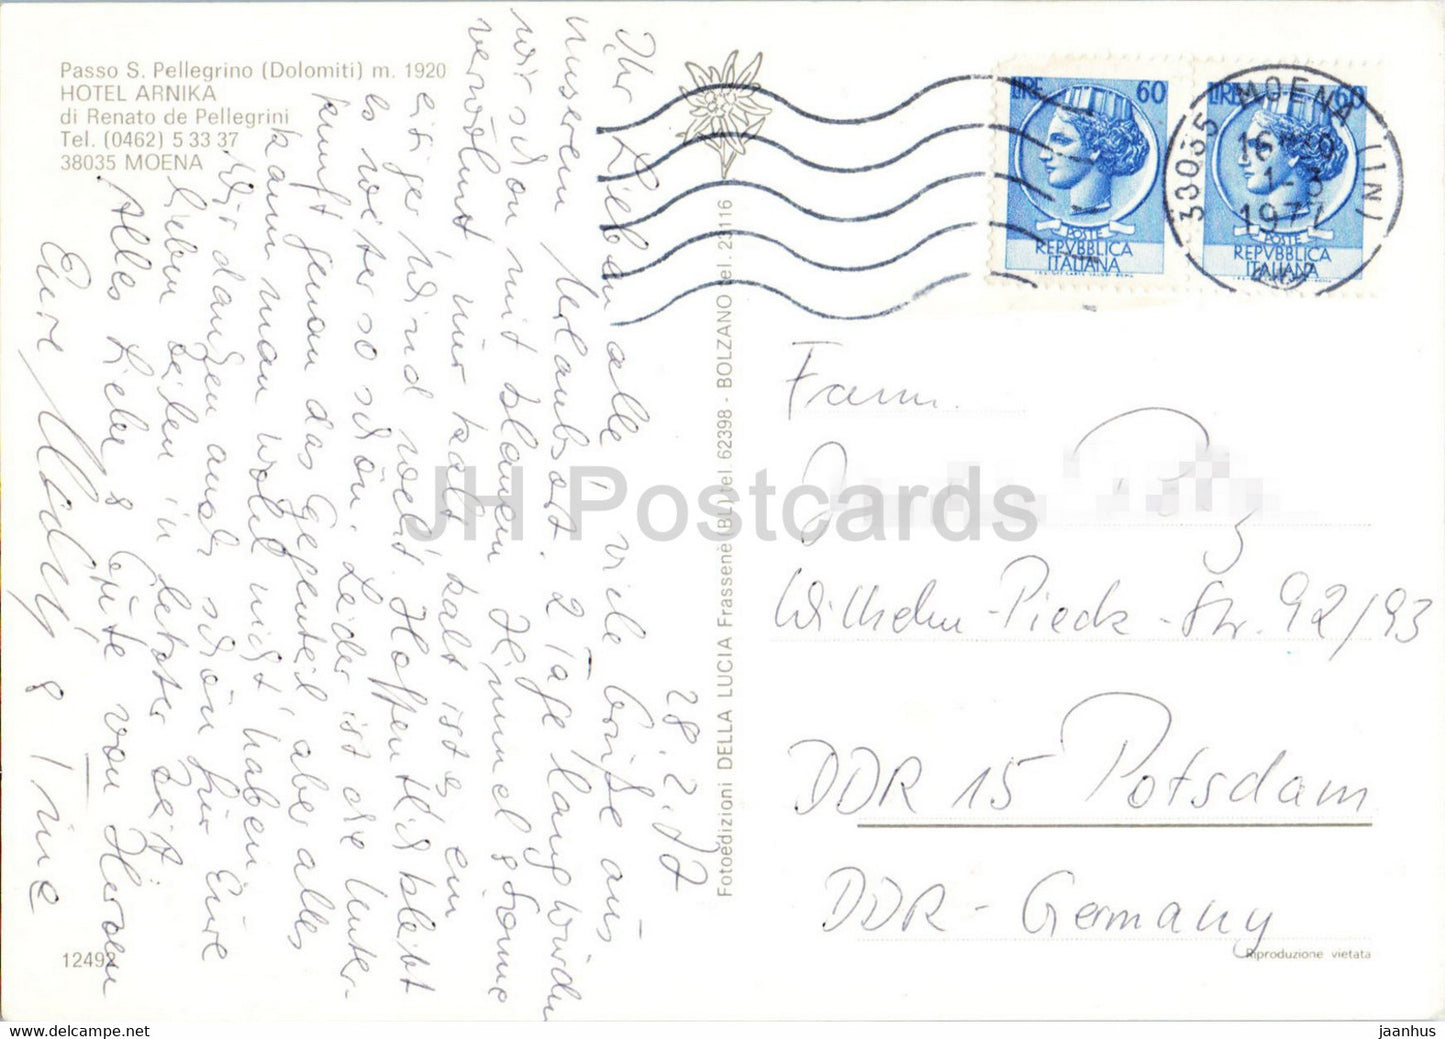 Passo S. Pellegrino (Dolomiti) m. 1920
HOTEL ARNIKA
di Renato de Pellegrini
Tel. (0462) 5 33 37
38035 MOENA
28.2.77
Ihr Lieben alle! viele Grüße aus
unserem Urlaubsort. 2 Tage lang wurden
wir schon mit blauem Himmel & Sonne
verwöhnt, nur kalt ist es, ein
eisiger Wind weht. Hoffentlich bleibt
es weiter so schön. Leider ist die Unter-
kunft genau das Gegenteil, aber alles
kann man wohl nicht haben.
Wir danken auch schön für Eure
lieben Zeilen in letzter Zeit.
Alles Liebe & Gute von Herzen
Eure &
12492
Fotoedizioni DELLA LUCIA Frassenè (BL) tel 62398 - BOLZANO tel. 23116
LIRE 60
POSTE
REPVBBLICA
ITALIANA
LIRE 60
POSTE
REPVBBLICA
ITALIANA
38035 MOENA (TN)
1-3
1977
Fam.
Wilhelm-Pieck-Str. 92/93
DDR 15 Potsdam
DDR - Germany
Riproduzione vietata
JH Postcards
https://jh-postcards.ee/
jaanhus